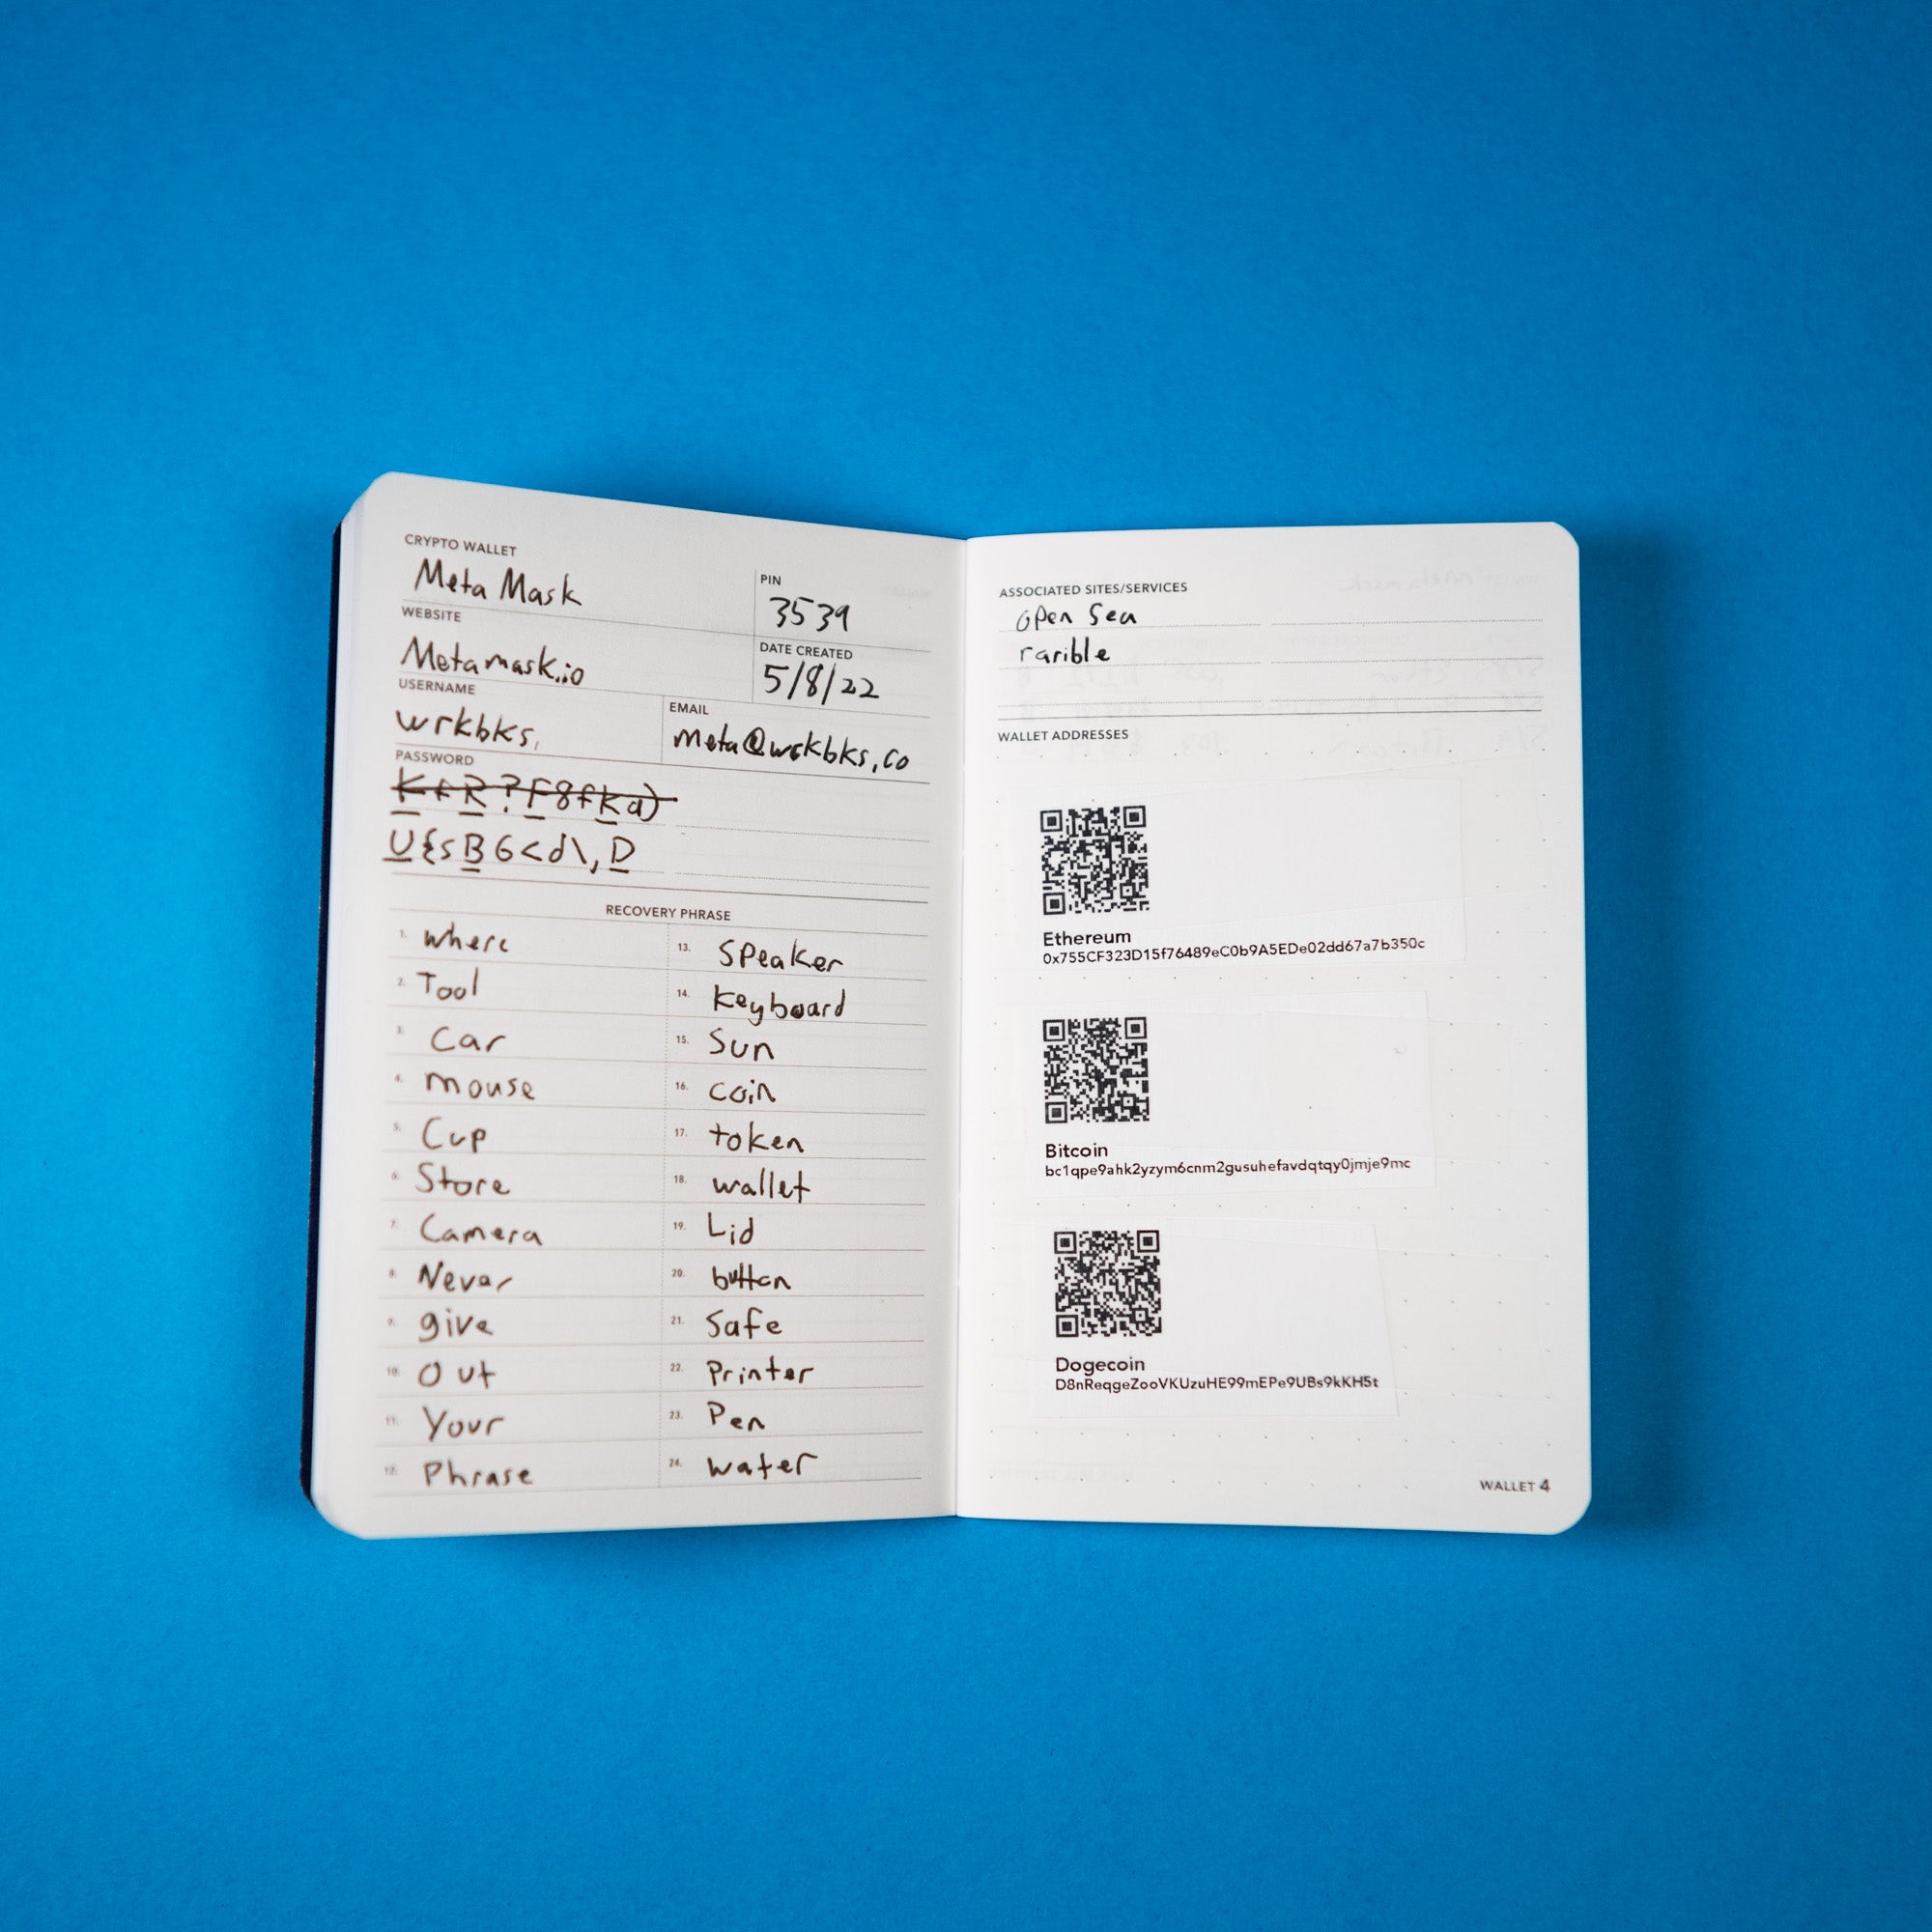 CRYPTO WALLET
Meta Mask
PIN
3539
WEBSITE
Metamask.io
DATE CREATED
5/8/22
USERNAME
wrkbks
EMAIL
meta@wrkbks.co
PASSWORD
K+R?F8fKa)
U{sBG<d\,D
RECOVERY PHRASE
1. where
2. Tool
3. Car
4. mouse
5. Cup
6. Store
7. Camera
8. Never
9. give
10. Out
11. Your
12. Phrase
13. Speaker
14. Keyboard
15. Sun
16. coin
17. token
18. wallet
19. Lid
20. button
21. Safe
22. Printer
23. Pen
24. water
ASSOCIATED SITES/SERVICES
open Sea
rarible
WALLET ADDRESSES
Ethereum
0x755CF323D15f76489eC0b9A5EDe02dd67a7b350c
Bitcoin
bc1qpe9ahk2yzym6cnm2gusuhefavdqtqy0jmje9mc
Dogecoin
D8nReqgeZooVKUzuHE99mEPe9UBs9kKH5t
WALLET 4